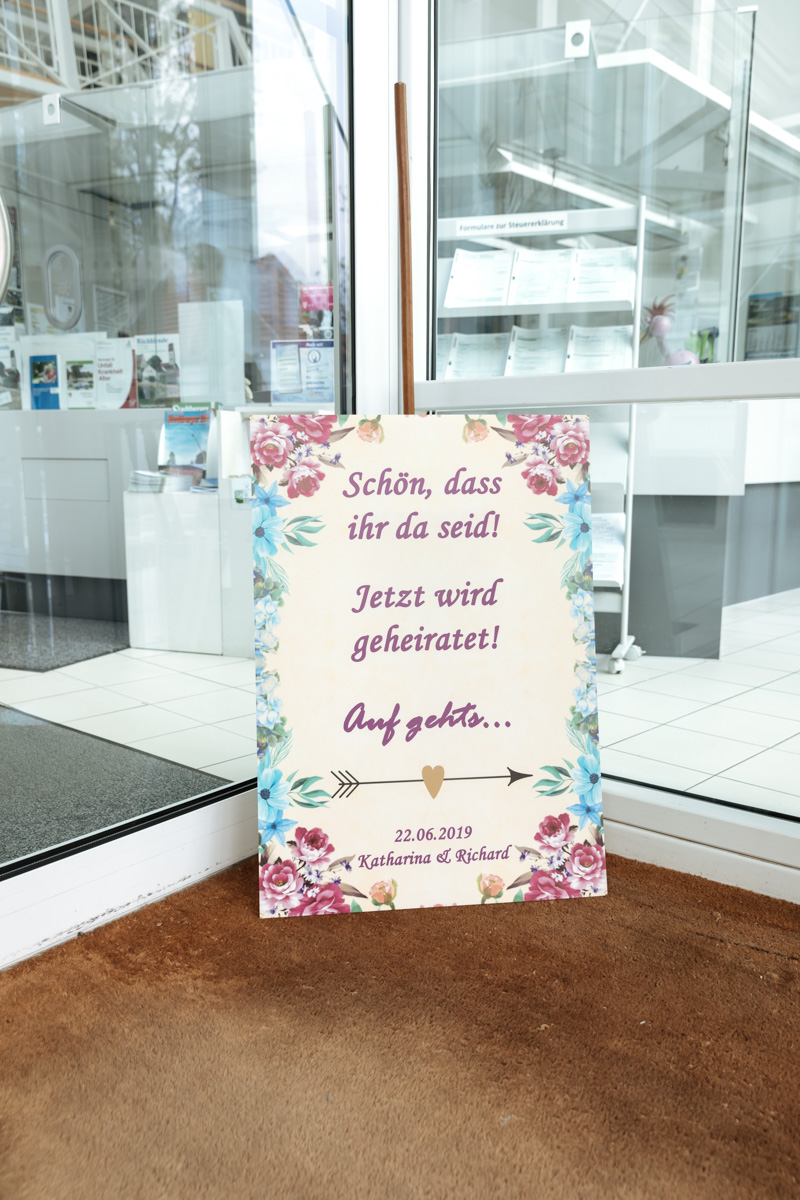 Formulare zur Steuererklärung
Schön, dass
ihr da seid!
Jetzt wird
geheiratet!
Auf gehts...
22.06.2019
Katharina & Richard